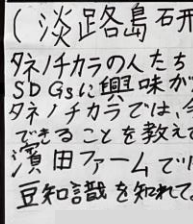 (淡路島 研
タネノチカラの人たち
SDGsに興味が
タネノチカラでは、
できることを教え
濱田ファームで
豆知識を知れて